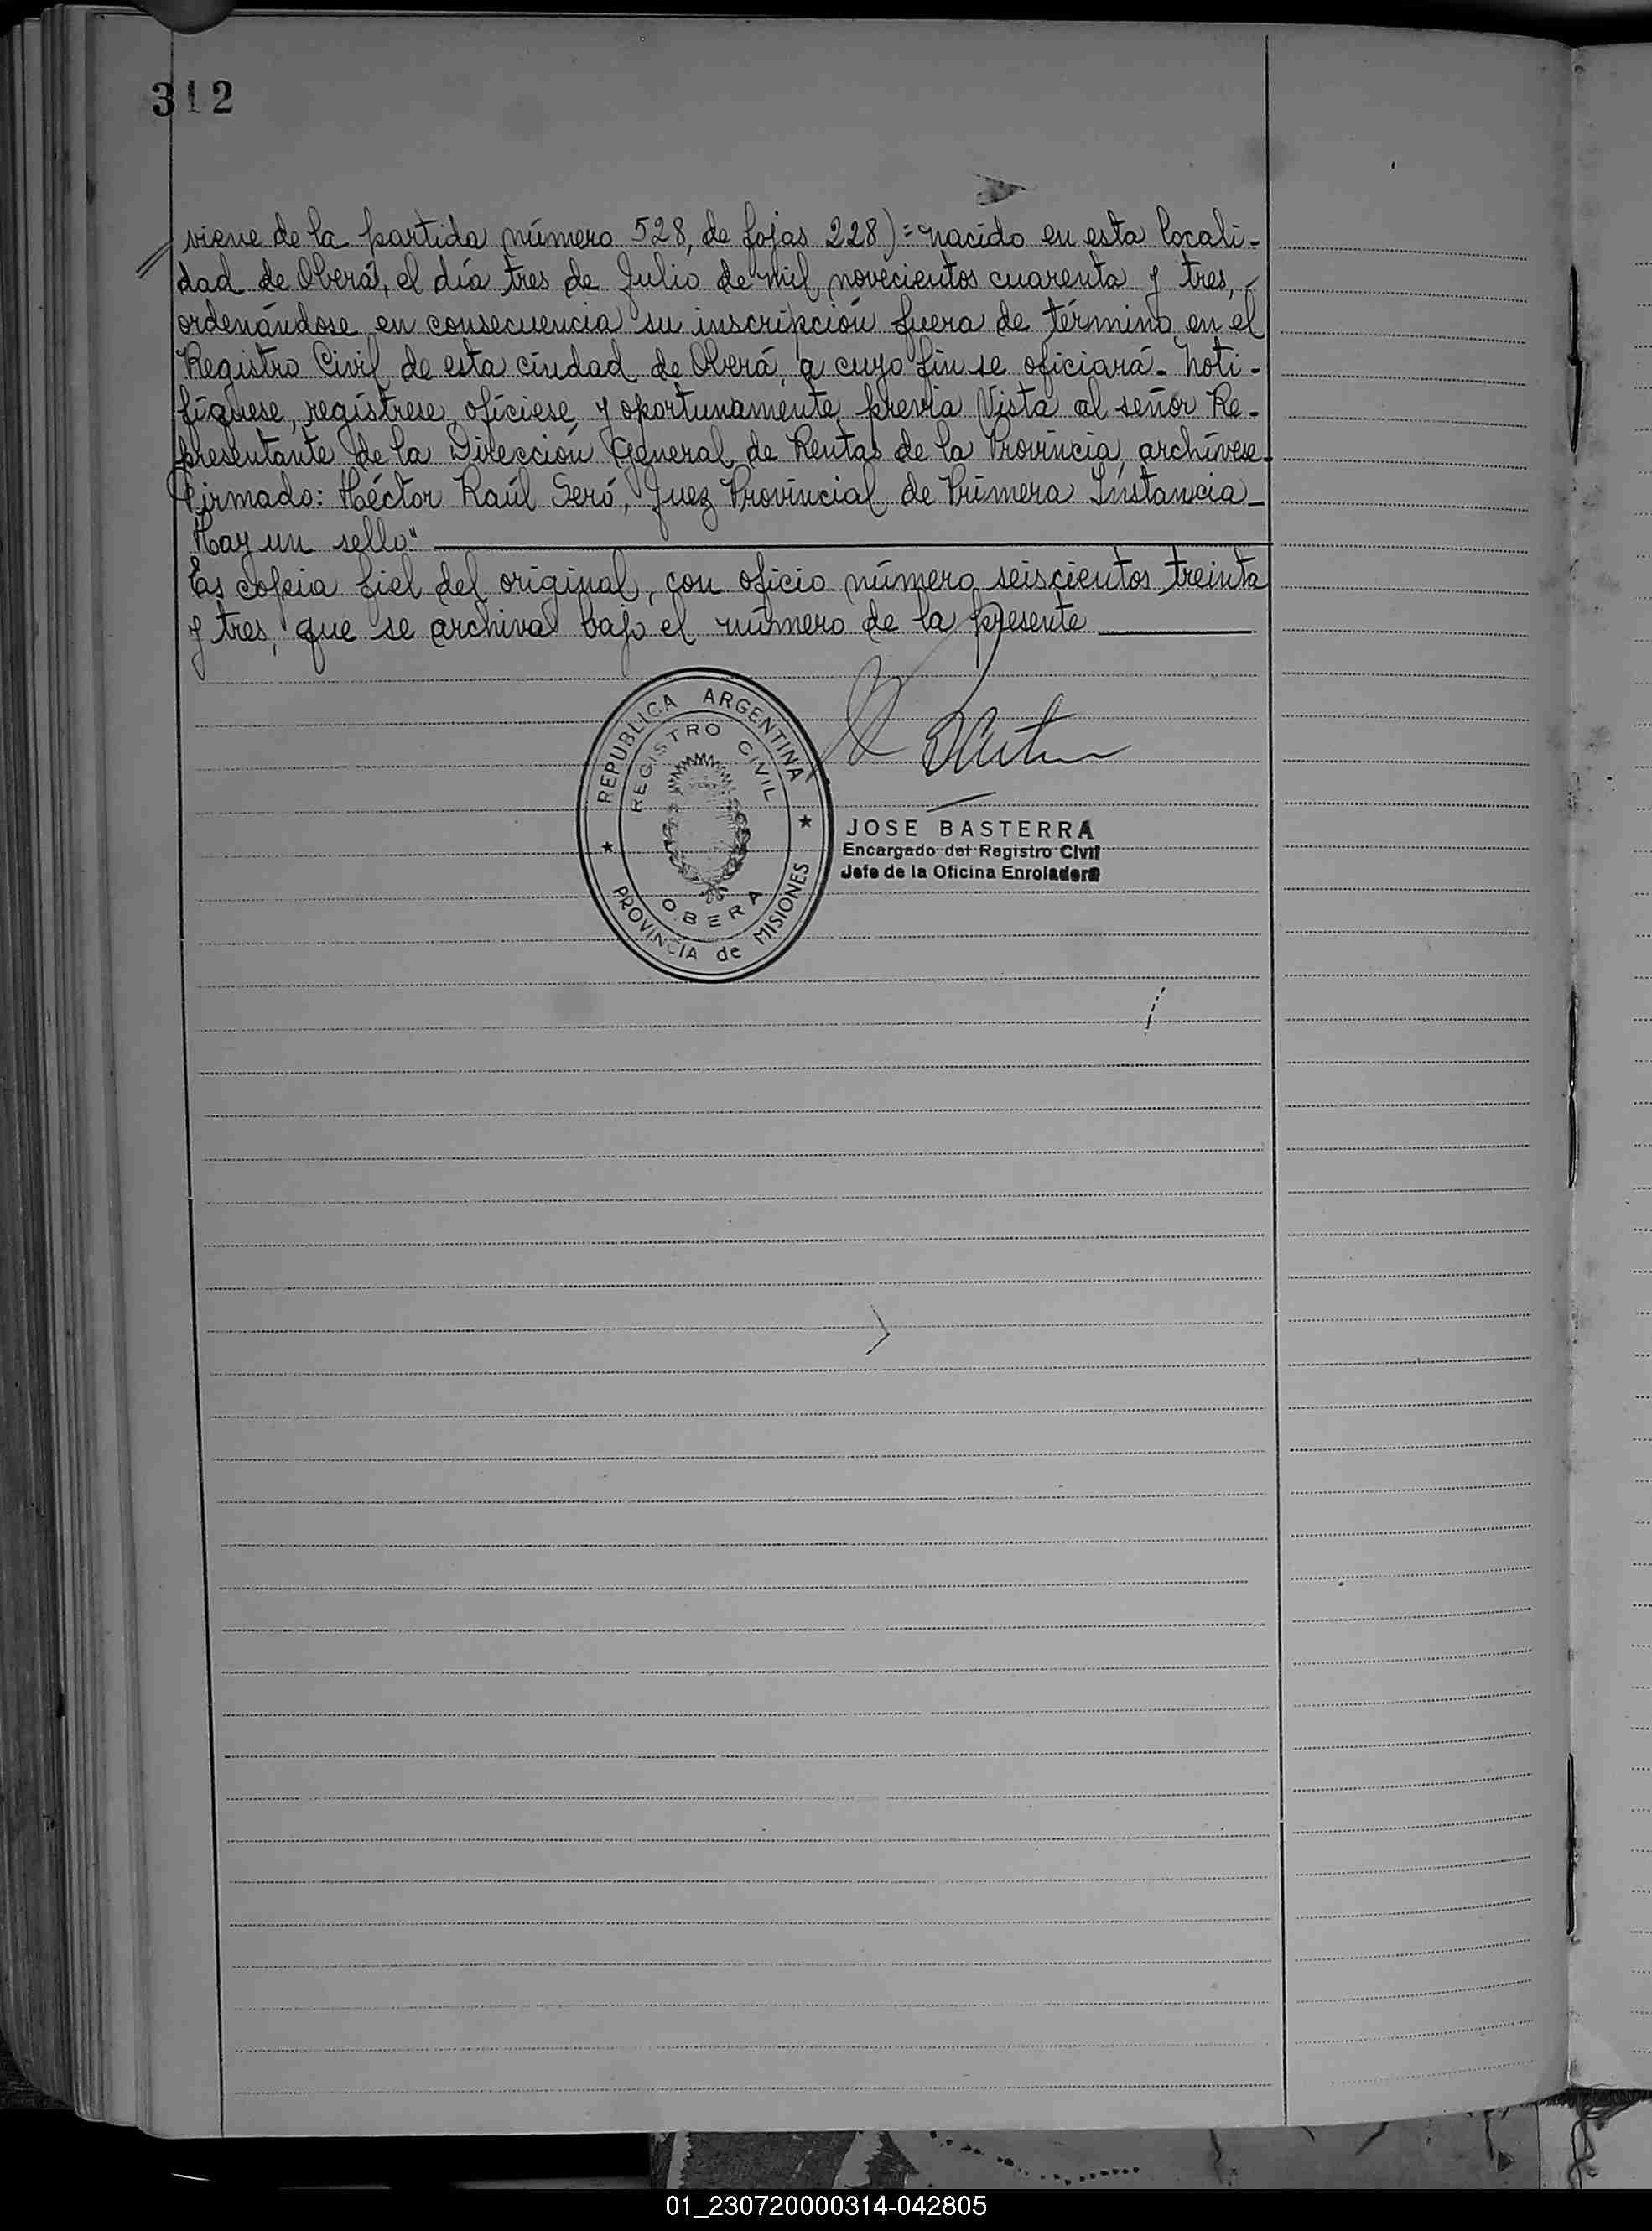 312
viene de la partida número 528, de fojas 228)=nacido en esta locali-
dad de Oberá, el día tres de Julio de mil novecientos cuarenta y tres,-
ordenándose en consecuencia su inscripción fuera de término en el
Registro Civil de esta ciudad de Oberá, a cuyo fin se oficiará- Noti-
fíquese, regístrese, ofíciese y oportunamente previa Vista al señor Re-
presentante de la Dirección General de Rentas de la Provincia, archívese.
Firmado: Héctor Raúl Seró, Juez Provincial de Primera Instancia_
Hay un sello"
Es copia fiel del original, con oficio número seiscientos treinta
y tres, que se archiva bajo el número de la presente
REPUBLICA ARGENTINA
REGISTRO CIVIL
OBERA
PROVINCIA de MISIONES
JOSE BASTERRA
Encargado del Registro Civil
Jefe de la Oficina Enroladora
01_230720000314-042805